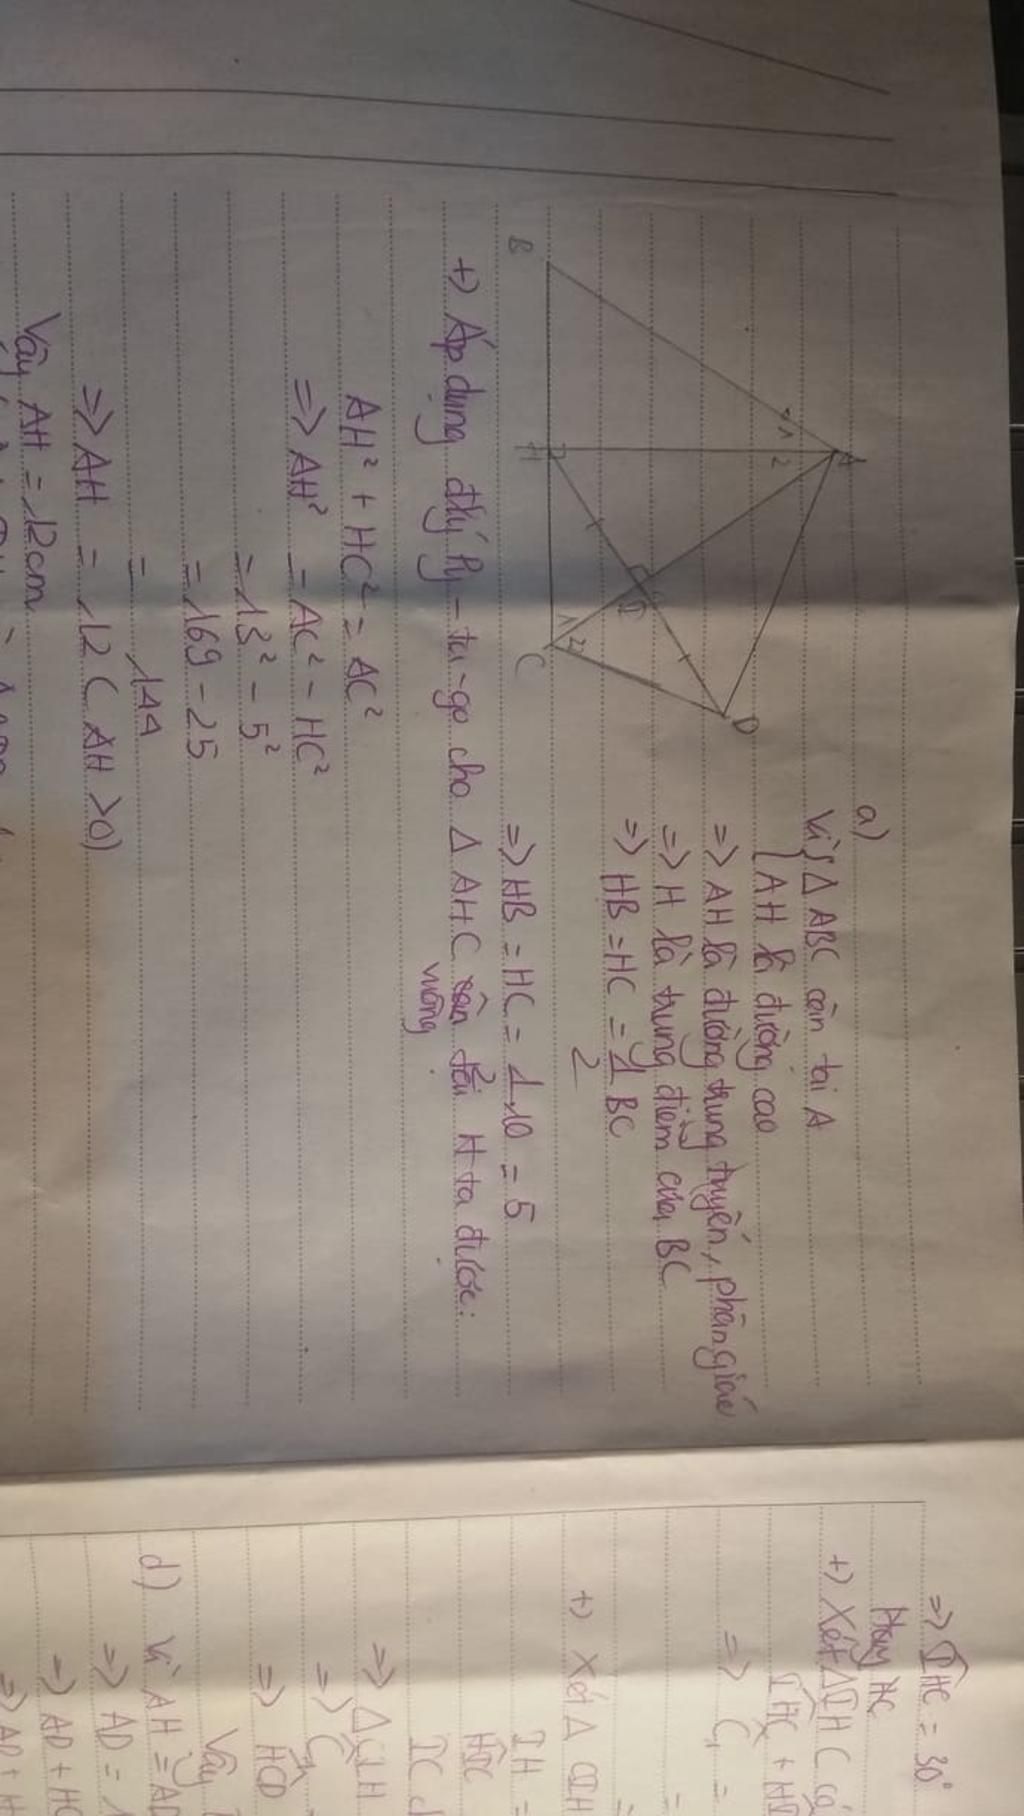 A
1
2
B
H
I
1
2
C
D
a)
Vì { Δ ABC cân tại A
AH là đường cao
=> AH là đường trung tuyến, phân giác
=> H là trung điểm của BC
=> HB = HC = 1/2 BC
=> HB = HC = 1/2 .10 = 5
+) Áp dụng đlý Py-ta-go cho Δ AHC vuông tại H ta được:
AH² + HC² = AC²
=> AH² = AC² - HC²
= 13² - 5²
= 169 - 25
= 144
=> AH = 12 (AH >0)
Vậy AH = 12cm
=> IHC = 30°
Hay HC
+) Xét Δ IHC có
IHC + HI
=> C₁ =
=
+) Xét Δ CIH
IH =
HIC
IC c
=> Δ CIH
=> C₁
=> HCD
Vậy
d) Vì AH = AD
=> AD = 1
=> AD + HC
=> AD + H